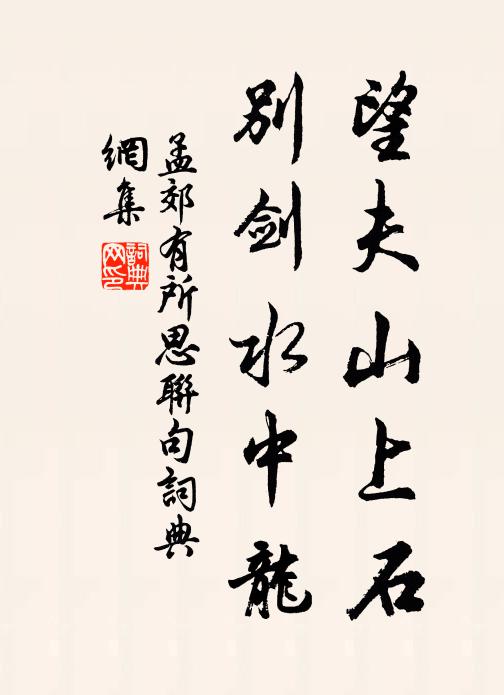 望夫山上石
別劍水中龍
孟郊有所思聯句詞典
網集
詞典
网印